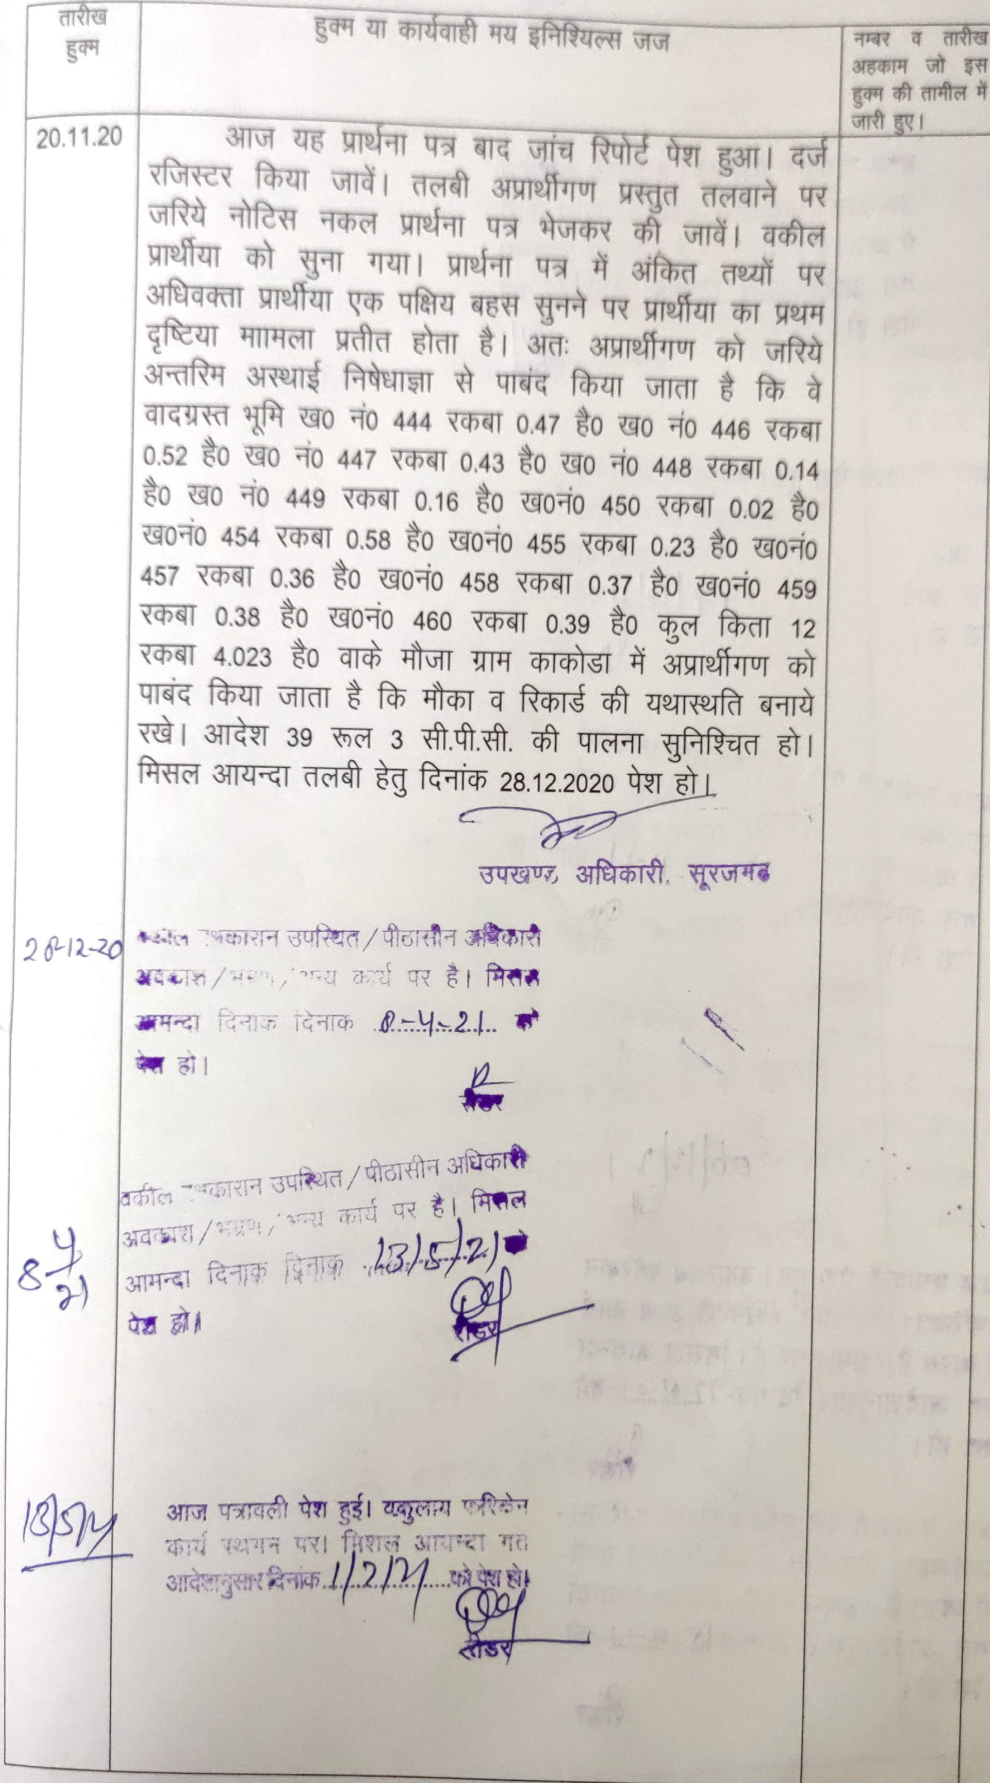 तारीख
हुक्म
हुक्म या कार्यवाही मय इनिश्यिल्स जज
नम्बर व तारीख
अहकाम जो इस
हुक्म की तामील में
जारी हुए।
20.11.20
आज यह प्रार्थना पत्र बाद जांच रिपोर्ट पेश हुआ। दर्ज
रजिस्टर किया जावें। तलबी अप्रार्थीगण प्रस्तुत तलवाने पर
जरिये नोटिस नकल प्रार्थना पत्र भेजकर की जावें। वकील
प्रार्थीया को सुना गया। प्रार्थना पत्र में अंकित तथ्यों पर
अधिवक्ता प्रार्थीया एक पक्षिय बहस सुनने पर प्रार्थीया का प्रथम
दृष्टिया माामला प्रतीत होता है। अतः अप्रार्थीगण को जरिये
अन्तरिम अस्थाई निषेधाज्ञा से पाबंद किया जाता है कि वे
वादग्रस्त भूमि ख0 नं0 444 रकबा 0.47 है0 ख0 नं0 446 रकबा
0.52 है0 ख0 नं0 447 रकबा 0.43 है0 ख0 नं0 448 रकबा 0.14
है0 ख0 नं0 449 रकबा 0.16 है0 ख0नं0 450 रकबा 0.02 है0
ख0नं0 454 रकबा 0.58 है0 ख0नं0 455 रकबा 0.23 है0 ख0नं0
457 रकबा 0.36 है0 ख0नं0 458 रकबा 0.37 है0 ख0नं0 459
रकबा 0.38 है0 ख0नं0 460 रकबा 0.39 है0 कुल किता 12
रकबा 4.023 है0 वाके मौजा ग्राम काकोडा में अप्रार्थीगण को
पाबंद किया जाता है कि मौका व रिकार्ड की यथास्थति बनाये
रखे। आदेश 39 रूल 3 सी.पी.सी. की पालना सुनिश्चित हो।
मिसल आयन्दा तलबी हेतु दिनांक 28.12.2020 पेश हो।
उपखण्ड अधिकारी, सूरजगढ
28-12-20
उपस्थित/पीठासीन अधिकारी
अवकाश/ कार्य पर है। मिसल
आमन्दा दिनाक दिनाक 8-4-21 को
पेश हो।
रीडर
वकील उपस्थित/पीठासीन अधिकारी
अवकाश/भ्रमण/अन्य कार्य पर है। मिसल
8 4/21
आमन्दा दिनाक दिनाक 13/5/21 को
पेश हो।
रीडर
13/5/21
आज पत्रावली पेश हुई। वकुलाय फरिकेन
कार्य स्थगन पर। मिशल आयन्दा गत
आदेशानुसार दिनांक 1/2/21 को पेश हो।
रीडर